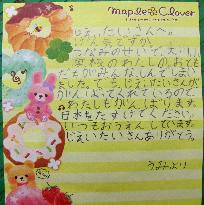 maple Clover
じえいたいさんへ。
げん気ですか。
つなみのせいで、大川小
学校のわたしの、おとも
だちがみんなしんでしまい
ました。でも、じえいたいさんが
がんばってくれているので、
わたしもがんばります。
日本をたすけてください。
いつもおうえんしています。
じえいたいさんありがとう。
うみより